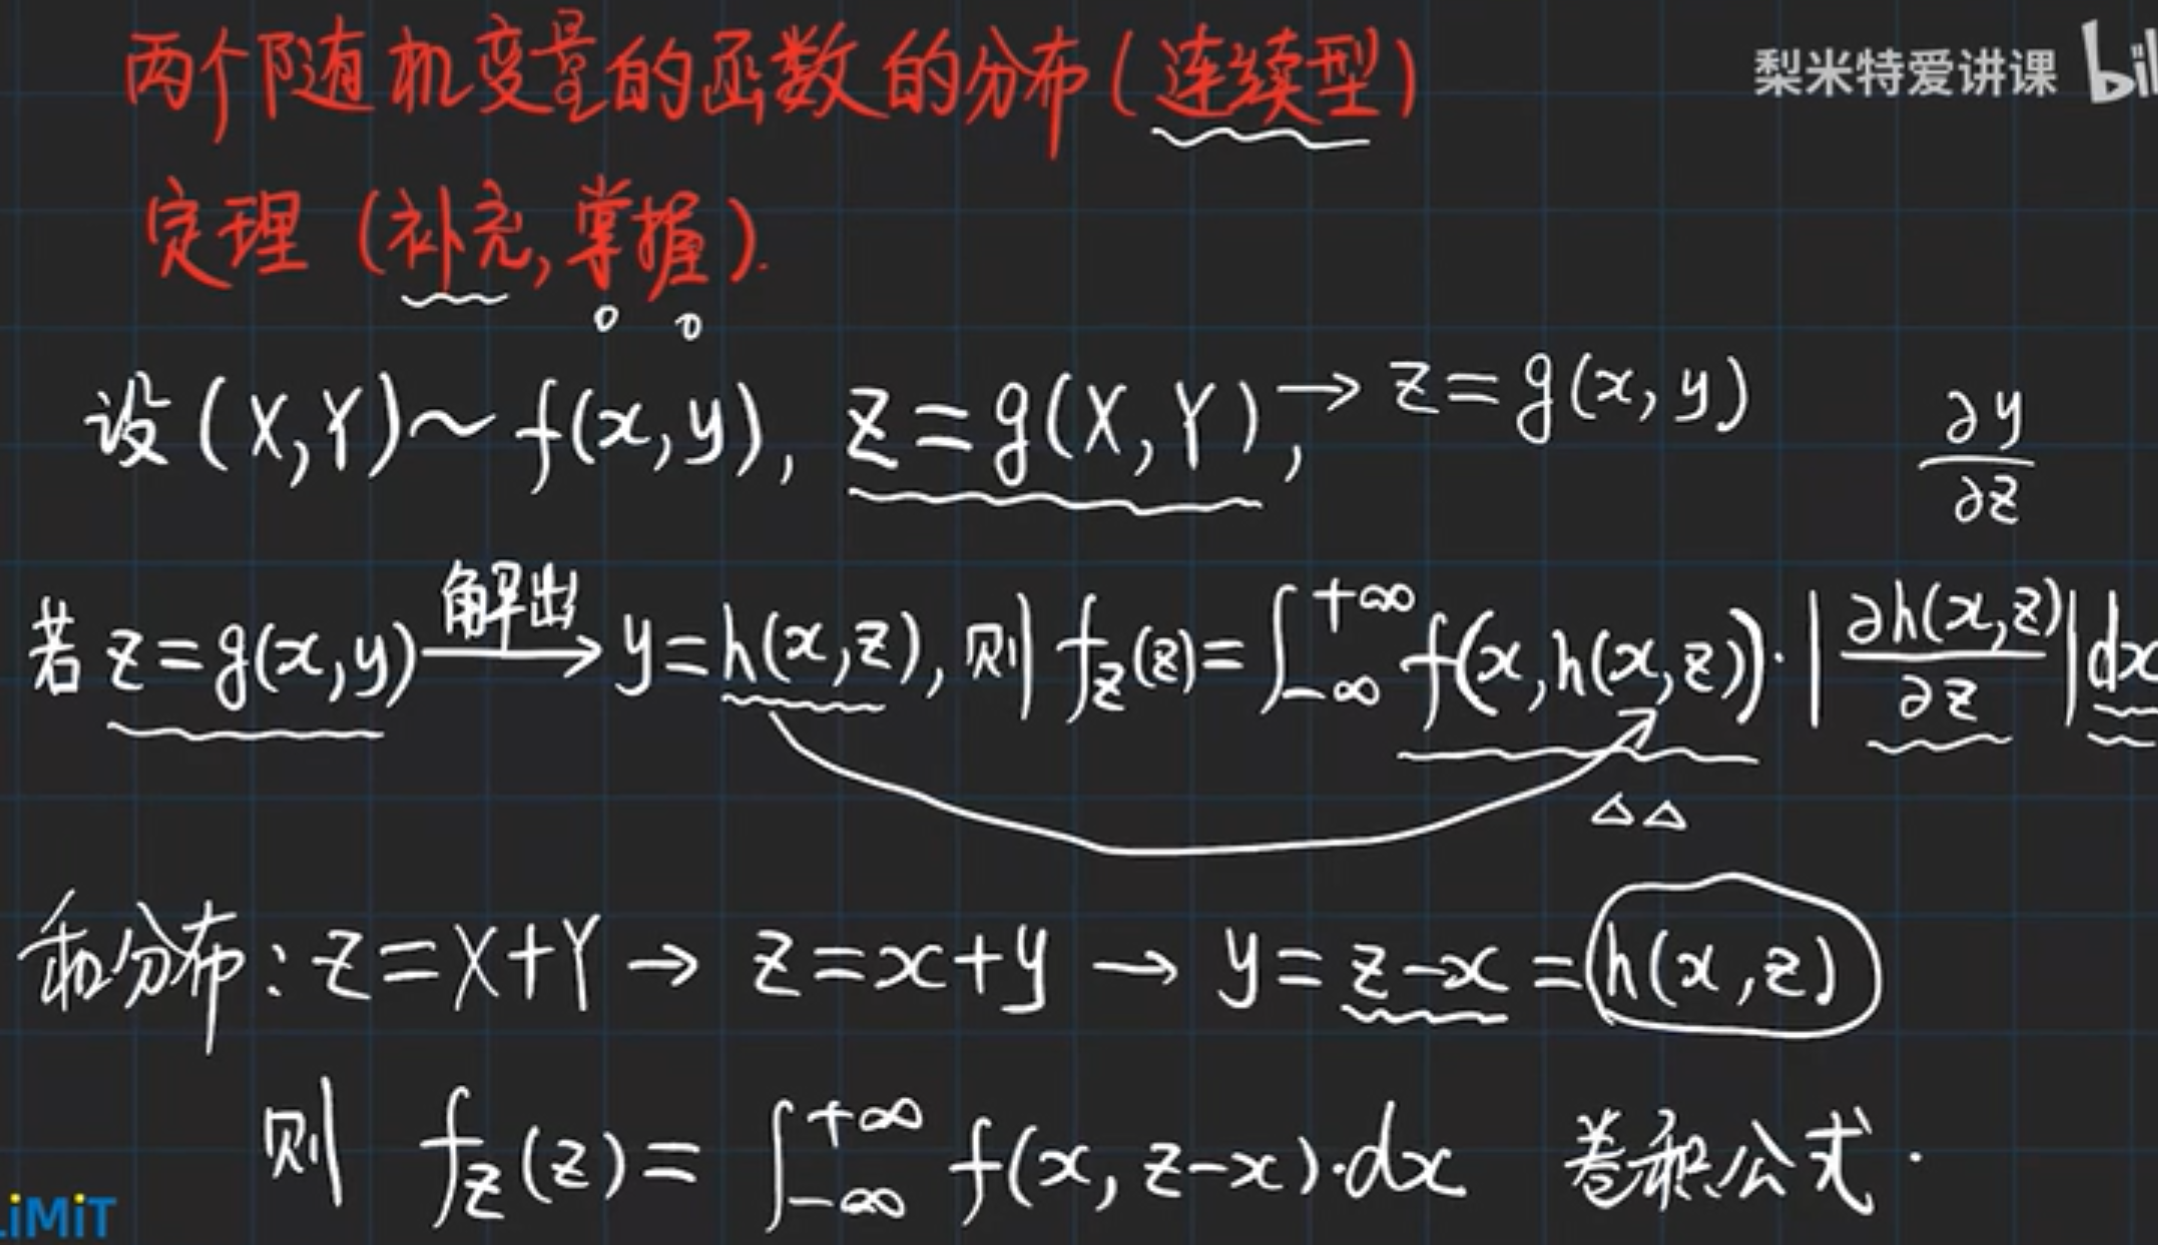 两个随机变量的函数的分布(连续型)
梨米特爱讲课 bil
定理 (补充,掌握).
设(X,Y)~f(x,y), Z=g(X,Y), → z=g(x,y)
∂y/∂z
若 z=g(x,y) 解出→ y=h(x,z), 则 f_Z(z)=∫_{-∞}^{+∞} f(x,h(x,z))·|∂h(x,z)/∂z|dx
△△
和分布: Z=X+Y → z=x+y → y=z-x=h(x,z)
则 f_Z(z)=∫_{-∞}^{+∞} f(x,z-x)·dx 卷积公式.
LiMiT